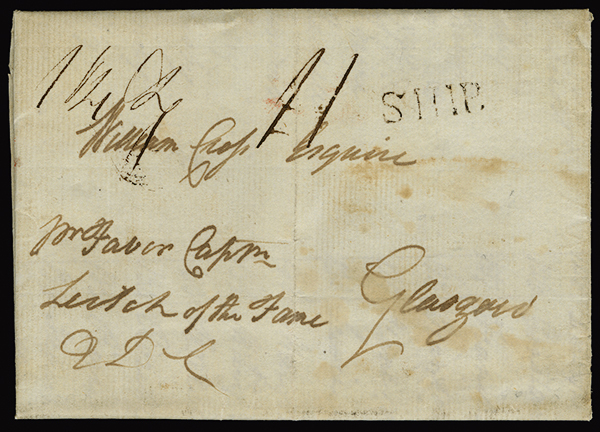 SHIP
William Cross Esquire
pr Favor Captn
Leitch of the Fame
Q D C
Glasgow